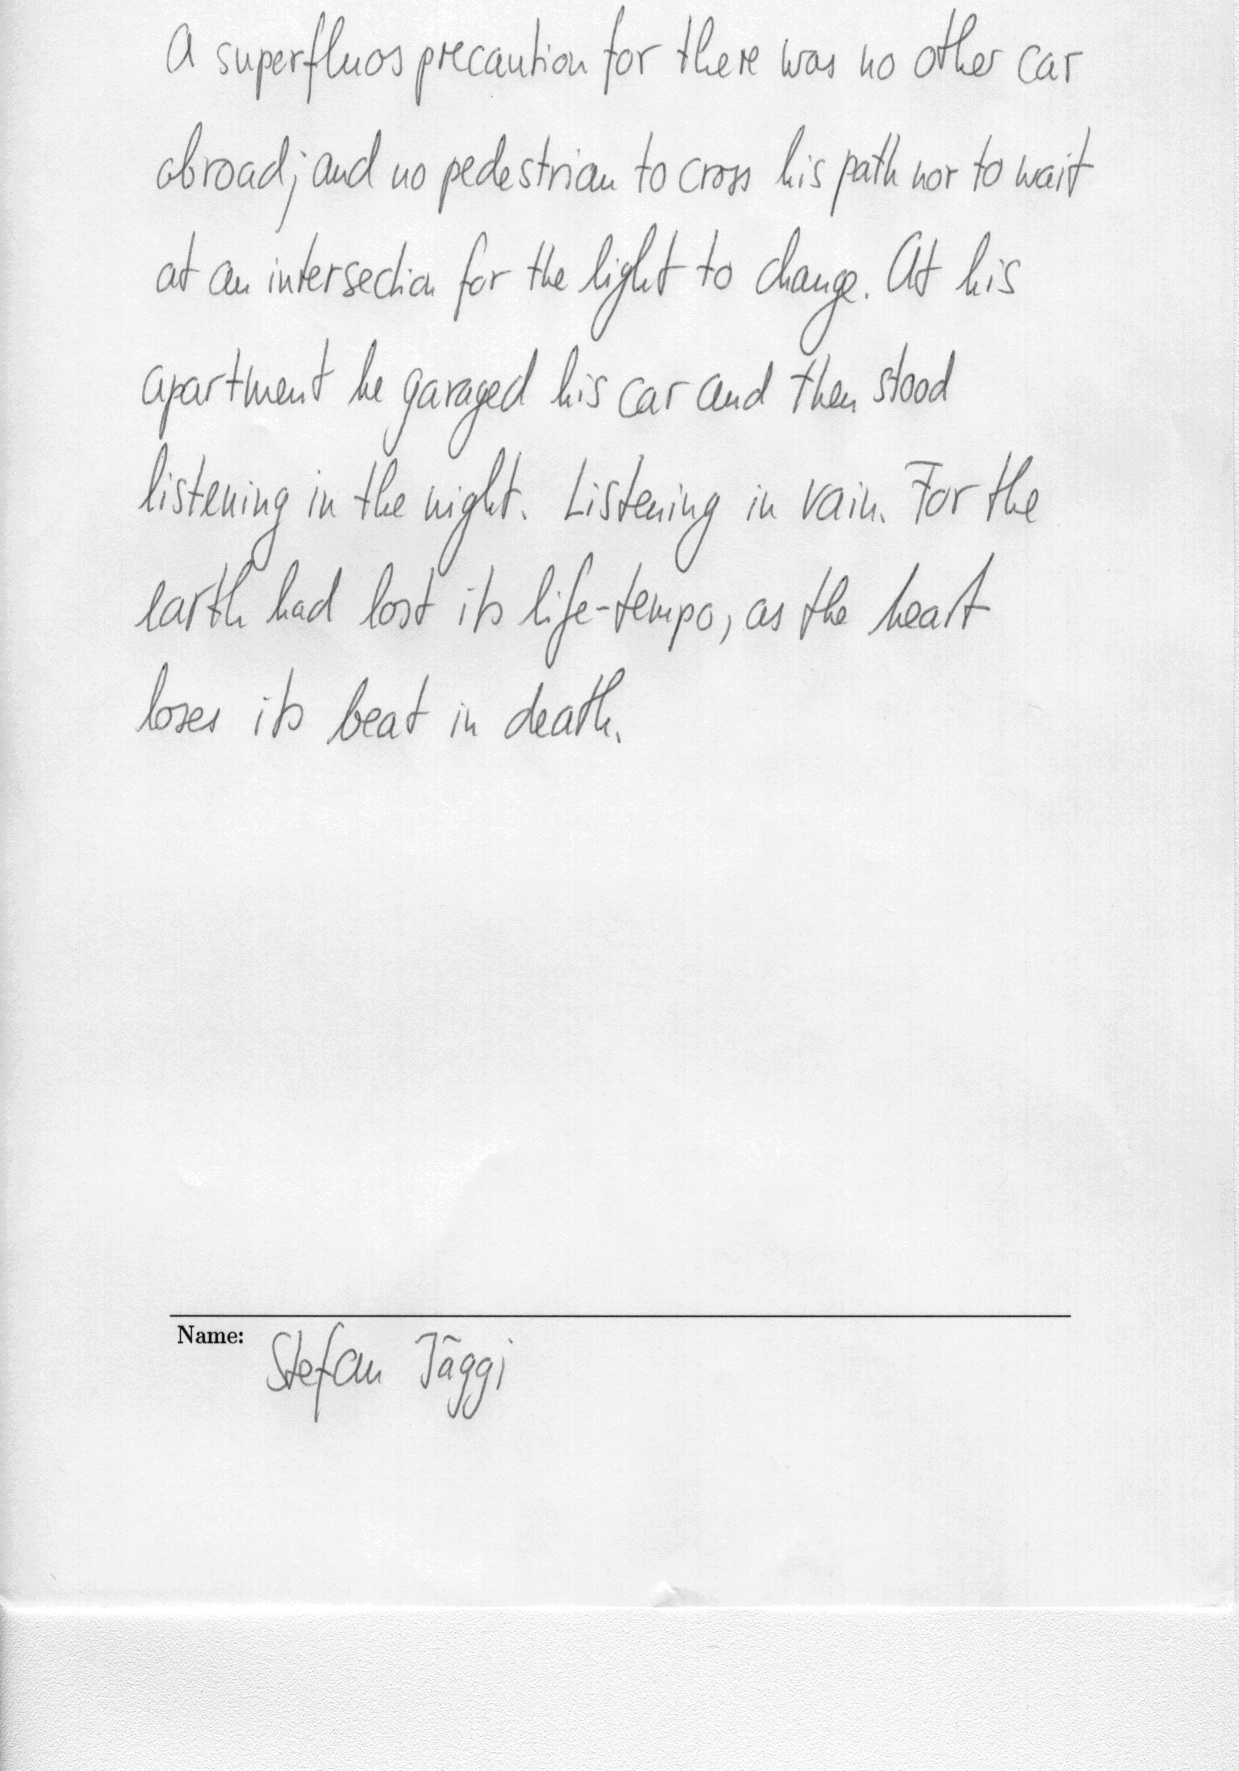 A superfluos precaution for there was no other car
abroad; and no pedestrian to cross his path nor to wait
at an intersection for the light to change. At his
apartment he garaged his car and then stood
listening in the night. Listening in vain. For the
earth had lost its life-tempo, as the heart
loses its beat in death.
Name: Stefan Jäggi